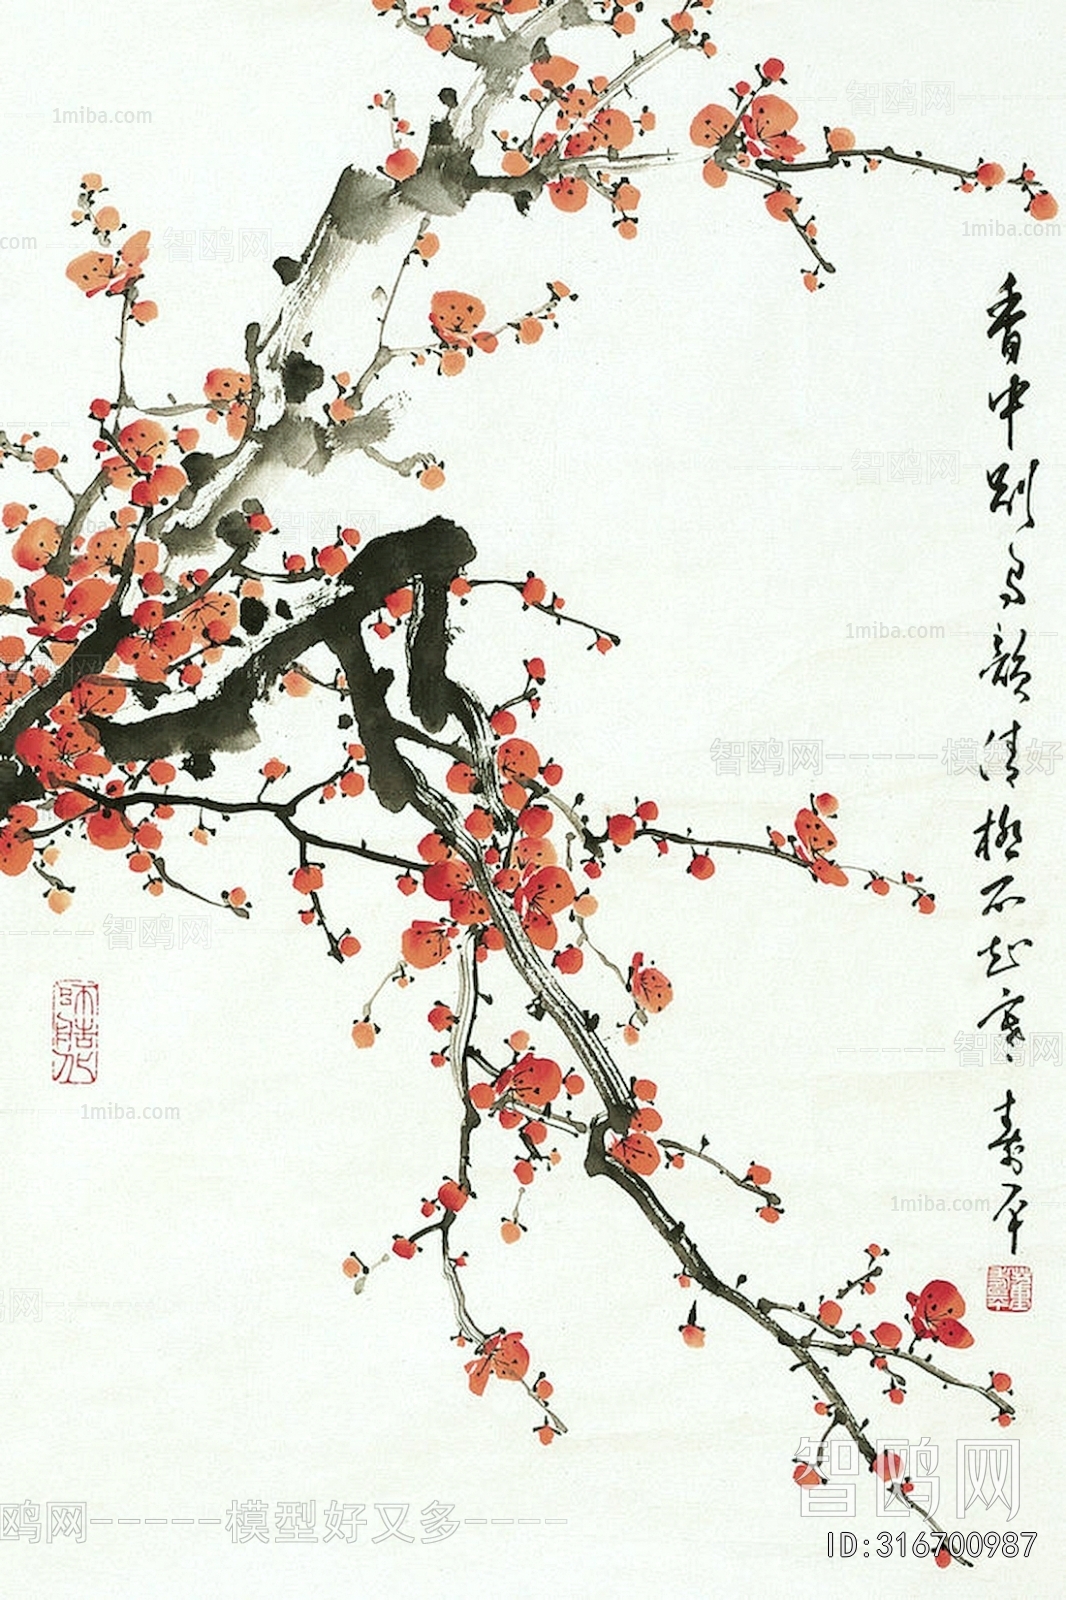 香中别有韵清极不知寒
寿平
师造化
1miba.com
智鸥网
om
1miba.com
智鸥网
1miba.com
智鸥网
1miba
智鸥网
1miba.com
智鸥网-----模型好
智鸥网
智鸥网
1miba.com
1miba.com
智鸥网
鸥网-----模型好又多----
ID:316700987